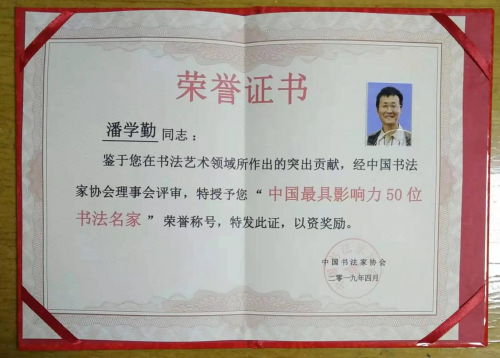 荣誉证书
潘学勤 同志：
鉴于您在书法艺术领域所作出的突出贡献，经中国书法
家协会理事会评审，特授予您“中国最具影响力50位
书法名家”荣誉称号，特发此证，以资奖励。
中国书法家协会
二零一九年四月